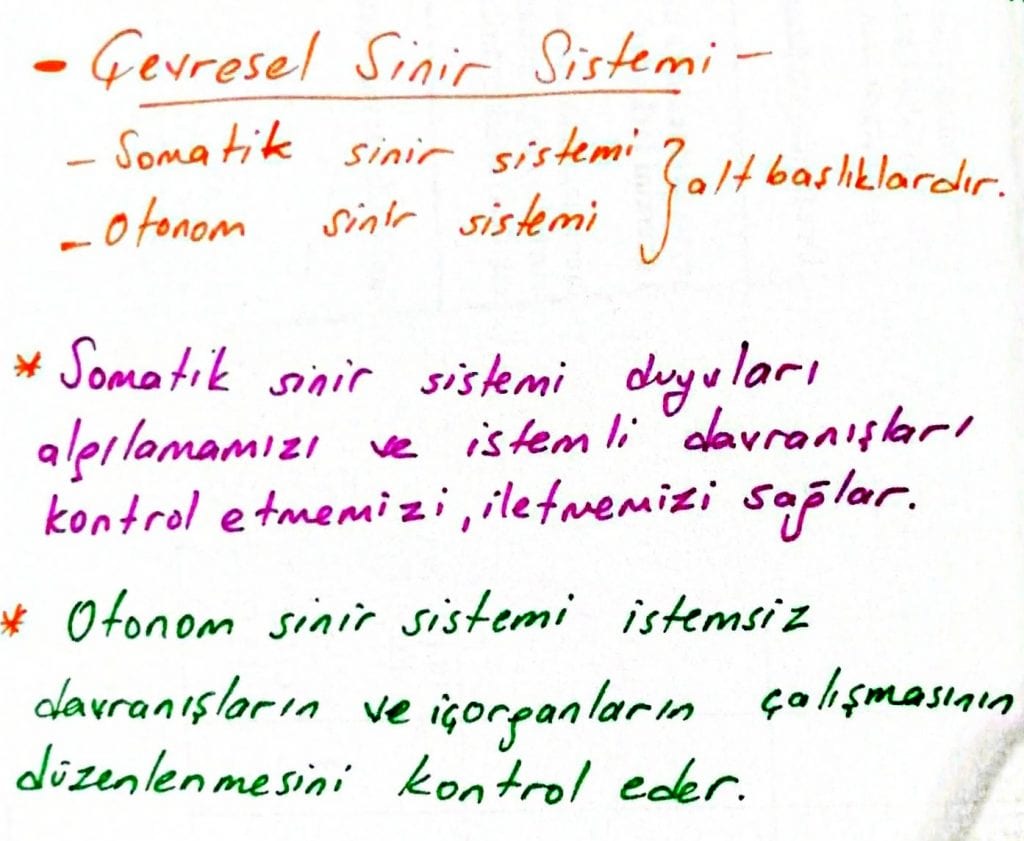 - Çevresel Sinir Sistemi -
- Somatik sinir sistemi } alt başlıklardır.
- Otonom sinir sistemi
* Somatik sinir sistemi duyuları
algılamamızı ve istemli davranışları
kontrol etmemizi, iletmemizi sağlar.
* Otonom sinir sistemi istemsiz
davranışların ve içorganların çalışmasının
düzenlenmesini kontrol eder.